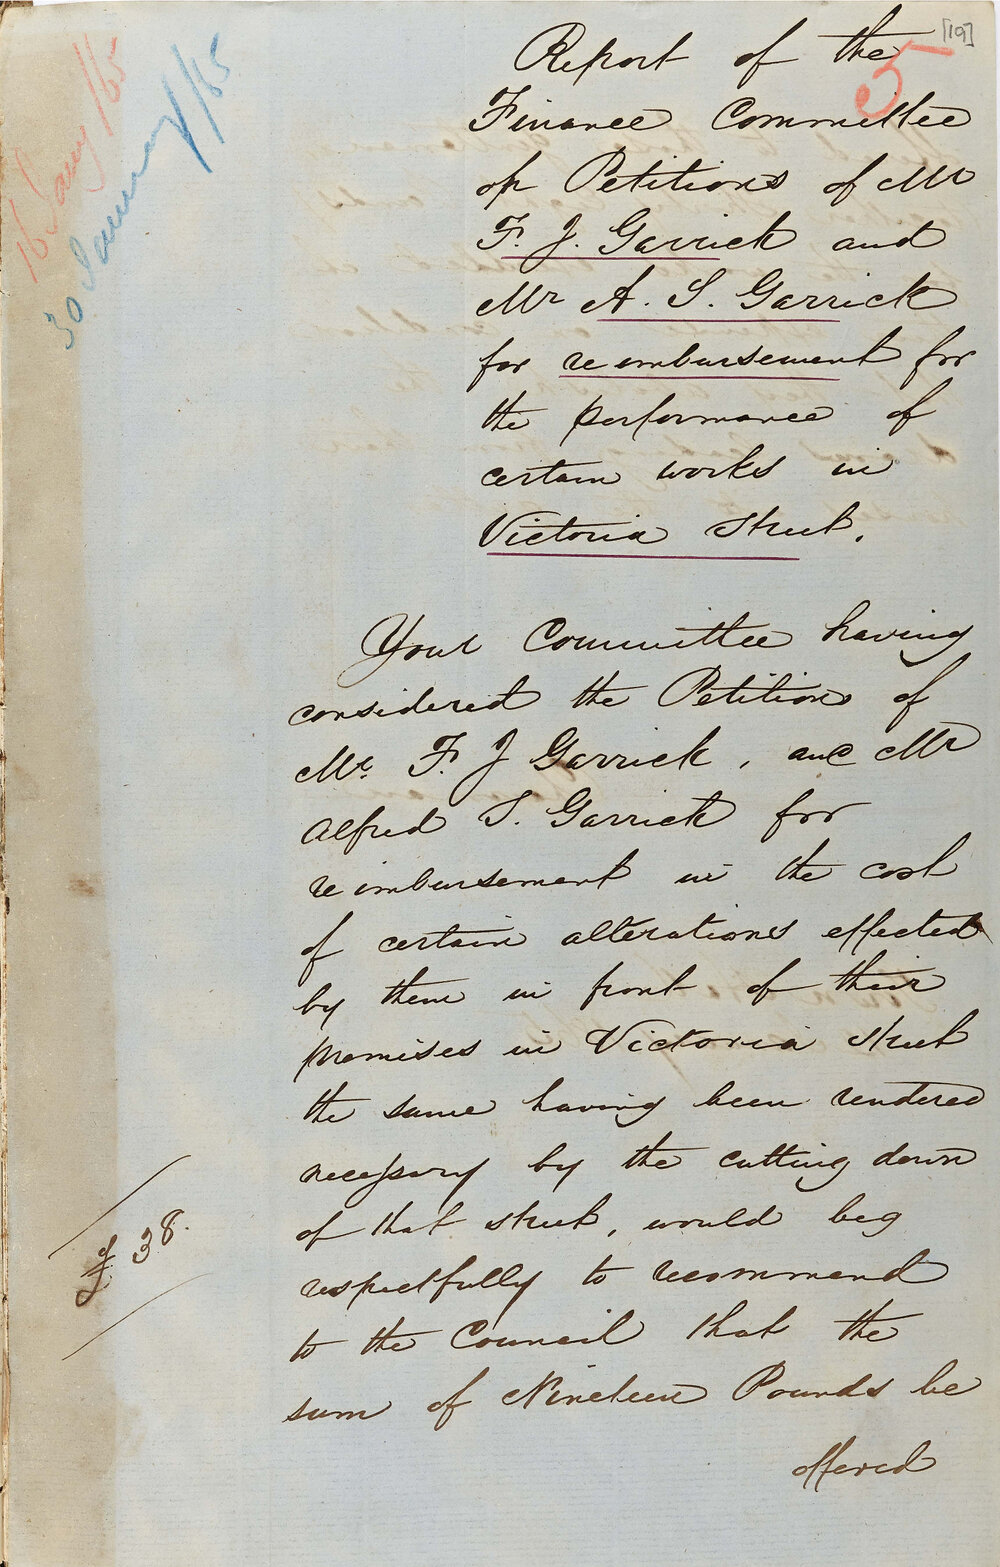 [19]
5
16 Jany/65
30 January/65
Report of the
Finance Committee
on Petitions of Mr
F. J. Garrick and
Mr A. S. Garrick
for reimbursement for
the performance of
certain works in
Victoria Street.
Your Committee having
considered the Petitions of
Mr. F. J Garrick, and Mr
Alfred S. Garrick for
reimbursement in the cost
of certain alterations effected
by them in front of their
premises in Victoria Street
the same having been rendered
necessary by the cutting down
of that street, would beg
respectfully to recommend
£38.
to the Council that the
sum of Nineteen Pounds be
offered